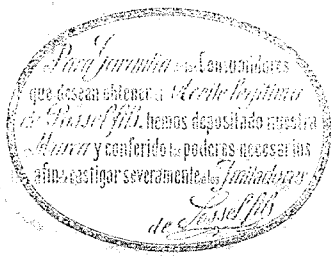 Para Garantia de los Consumidores
que desean obtener el Aceite legitimo
de Possel fils, hemos depositado nuestra
Marca y conferido los poderes necesarios
a fin de castigar severamente a los Imitadores
de Possel fils